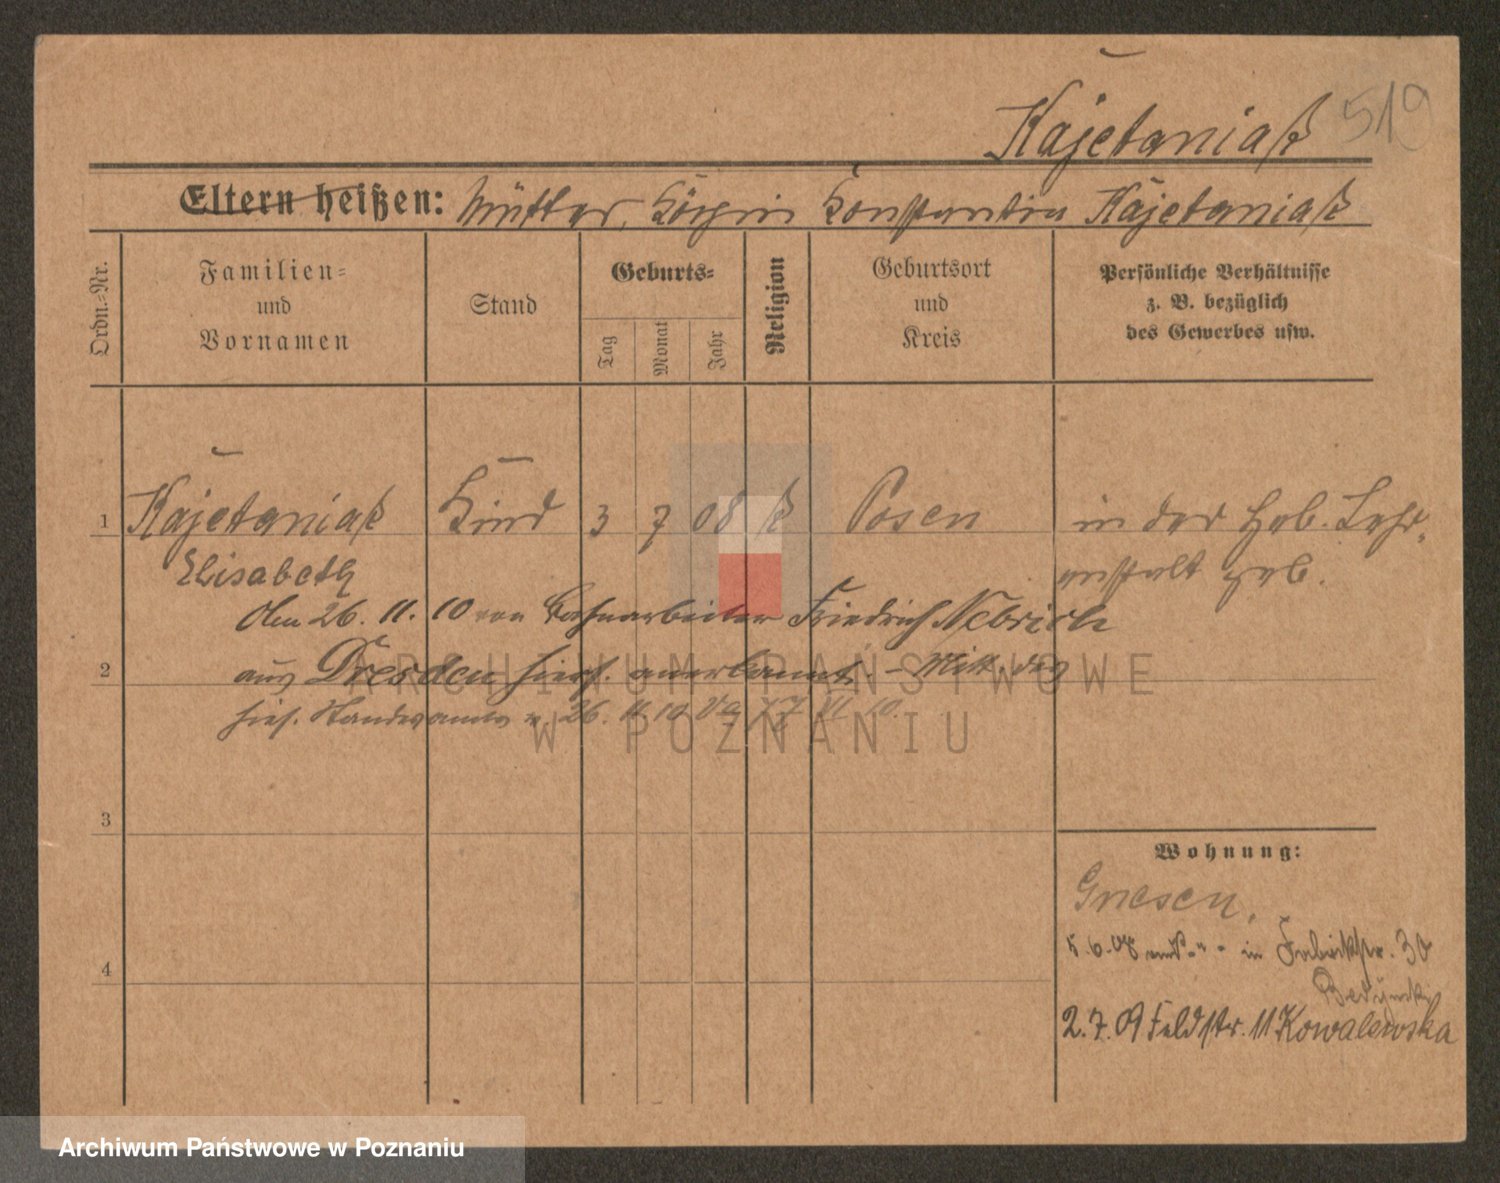 Kajetaniak 519
Eltern heißen: Mutter, Köchin Konstantia Kajetaniak
Ordn.-Nr.
Familien-
und
Vornamen
Stand
Geburts-
Tag
Monat
Jahr
Religion
Geburtsort
und
Kreis
Persönliche Verhältnisse
z. B. bezüglich
des Gewerbes usw.
1 Kajetaniak Kind 3 7 08 k Posen in der Heb. Lehr-
Elisabeth anstalt geb.
Am 26. 11. 10 von Bahnarbeiter Friedrich
2 aus Dresden hiers. anerkannt. – Mitt. des
hies. Standesamts v. 26. 11. 10
3
4
Wohnung:
Gnesen,
5.6.08 in Fabrikstr. 30
2.7.09 Feldstr. 11 Kowalewska
ARCHIWUM PAŃSTWOWE
W POZNANIU
Archiwum Państwowe w Poznaniu